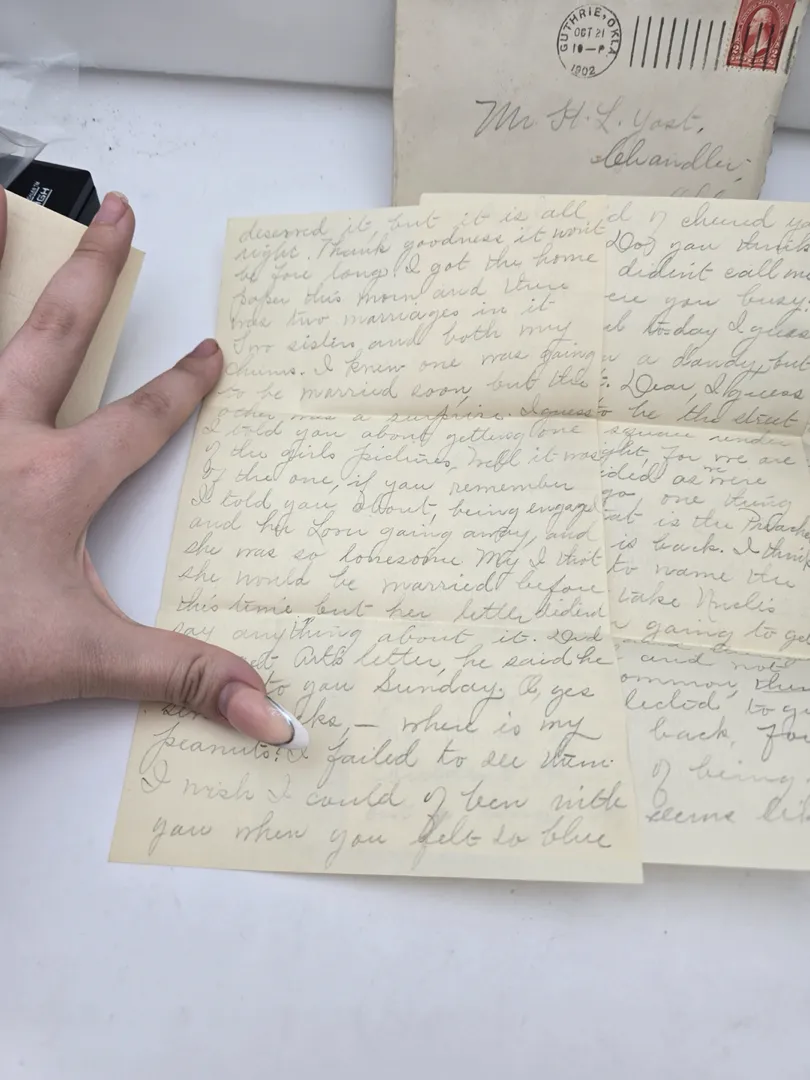 GUTHRIE, OKLA.
OCT 21
10-P
1902
Mr H. L. Yost,
Chandler,
deserved it, but it is all
right. Thank goodness it wont
be fore long. I got the home
paper this morn and there
was two marriages in it
Two sisters and both my
chums. I knew one was going
to be married soon, but the
other was a surprise. I guess
I told you about getting one
of the girls pictures, Well it was
of the one, if you remember
I told you about, being engaged
and her Lover going away, and
she was so lonesome My I thot
she would be married before
this time but her letter didend
say anything about it. Did
Arts letter, he said he
to you Sunday. O, yes
— where is my
peanuts? I failed to see them.
I wish I could of been with
you when you felt so blue
d of cheered yo
Do, you think
did'nt call me
ere you busy.
to-day I guess
a dandy, but
Dear, I guess
to be the strict
square under
ght, for we are
ided as were
go, one thing
at is the Preache
is back. I think
to name the
take
going to ge
and not
ommon, the
lected to g
back, for
of being
seems lik